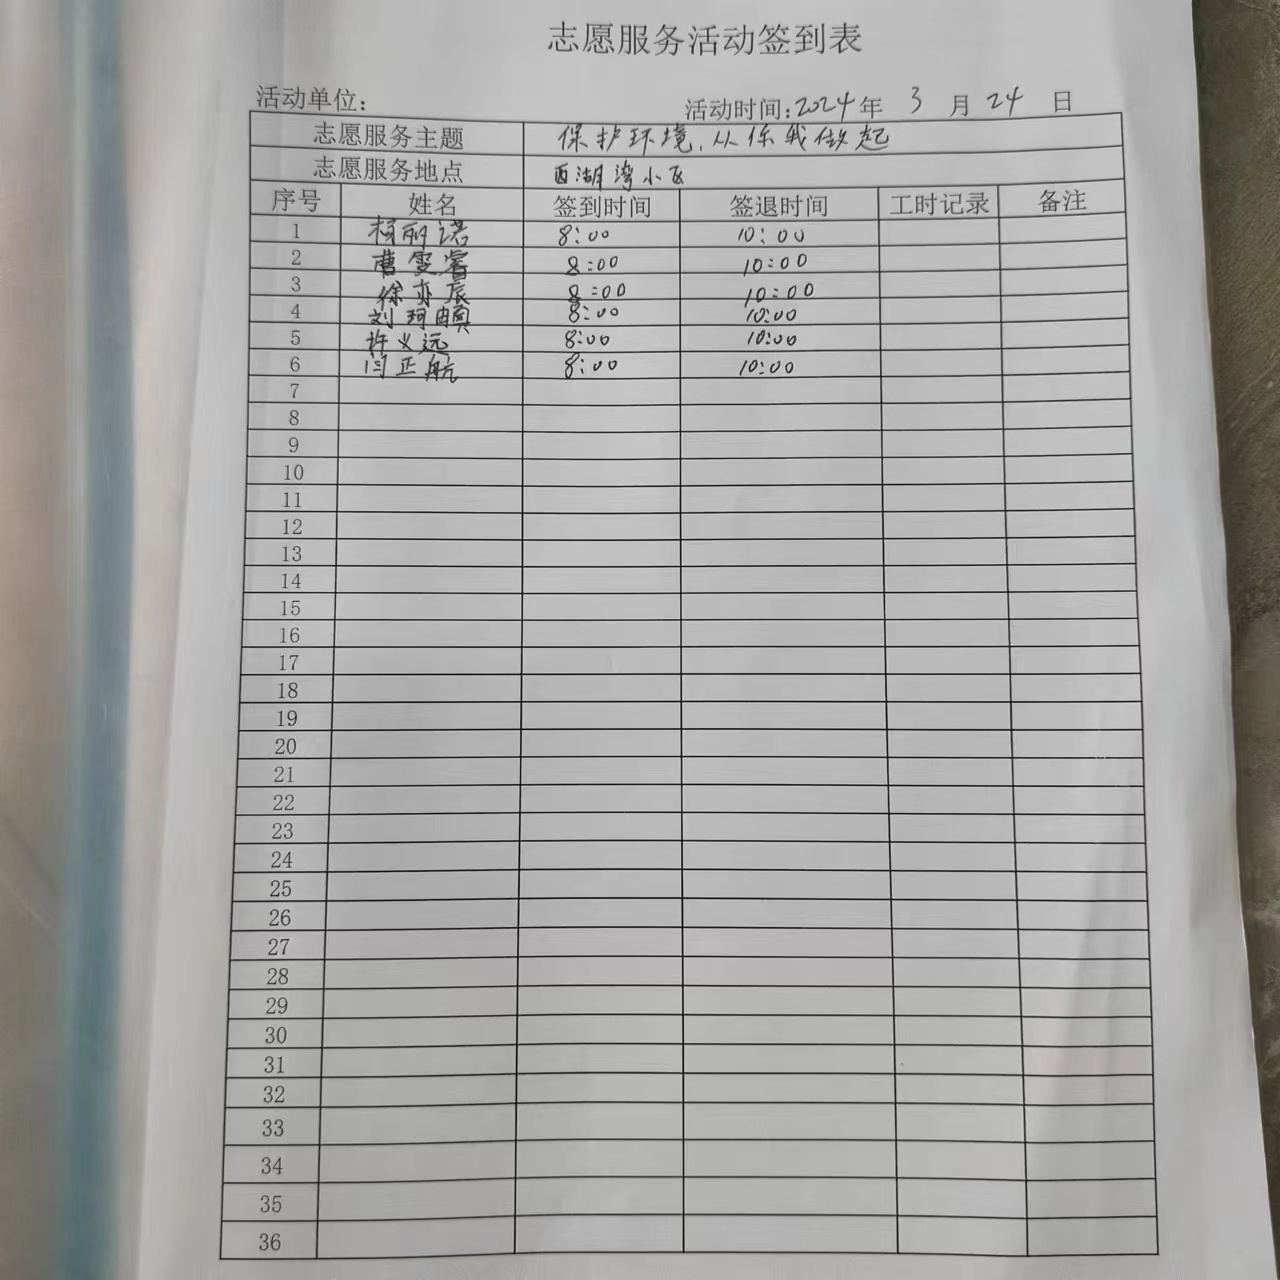 志愿服务活动签到表
活动单位: 活动时间:2024年 3 月 24 日
志愿服务主题 保护环境,从你我做起
志愿服务地点 西湖湾小区
序号 姓名 签到时间 签退时间 工时记录 备注
1 杨丽诺 8:00 10:00
2 曹雯睿 8:00 10:00
3 徐亦辰 8:00 10:00
4 刘珂 8:00 10:00
5 许义远 8:00 10:00
6 闫正航 8:00 10:00
7
8
9
10
11
12
13
14
15
16
17
18
19
20
21
22
23
24
25
26
27
28
29
30
31
32
33
34
35
36